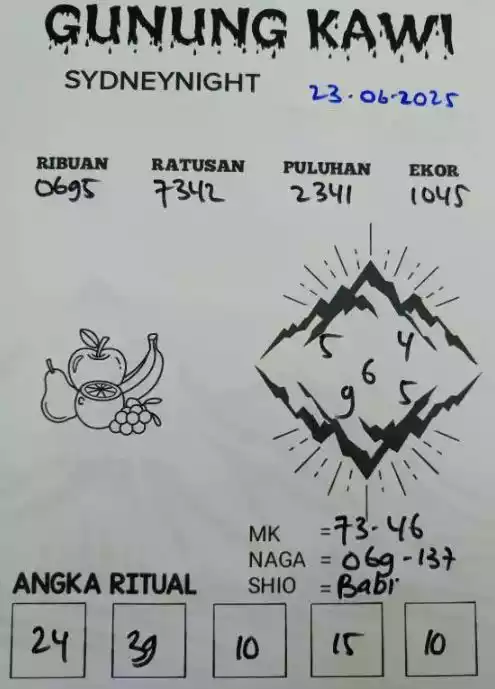 GUNUNG KAWI
SYDNEYNIGHT
23-06-2025
RIBUAN RATUSAN PULUHAN EKOR
0695 7342 2341 1045
5 4
6
9 5
MK = 73-46
NAGA = 069-137
SHIO = Babi
ANGKA RITUAL
24 39 10 15 10